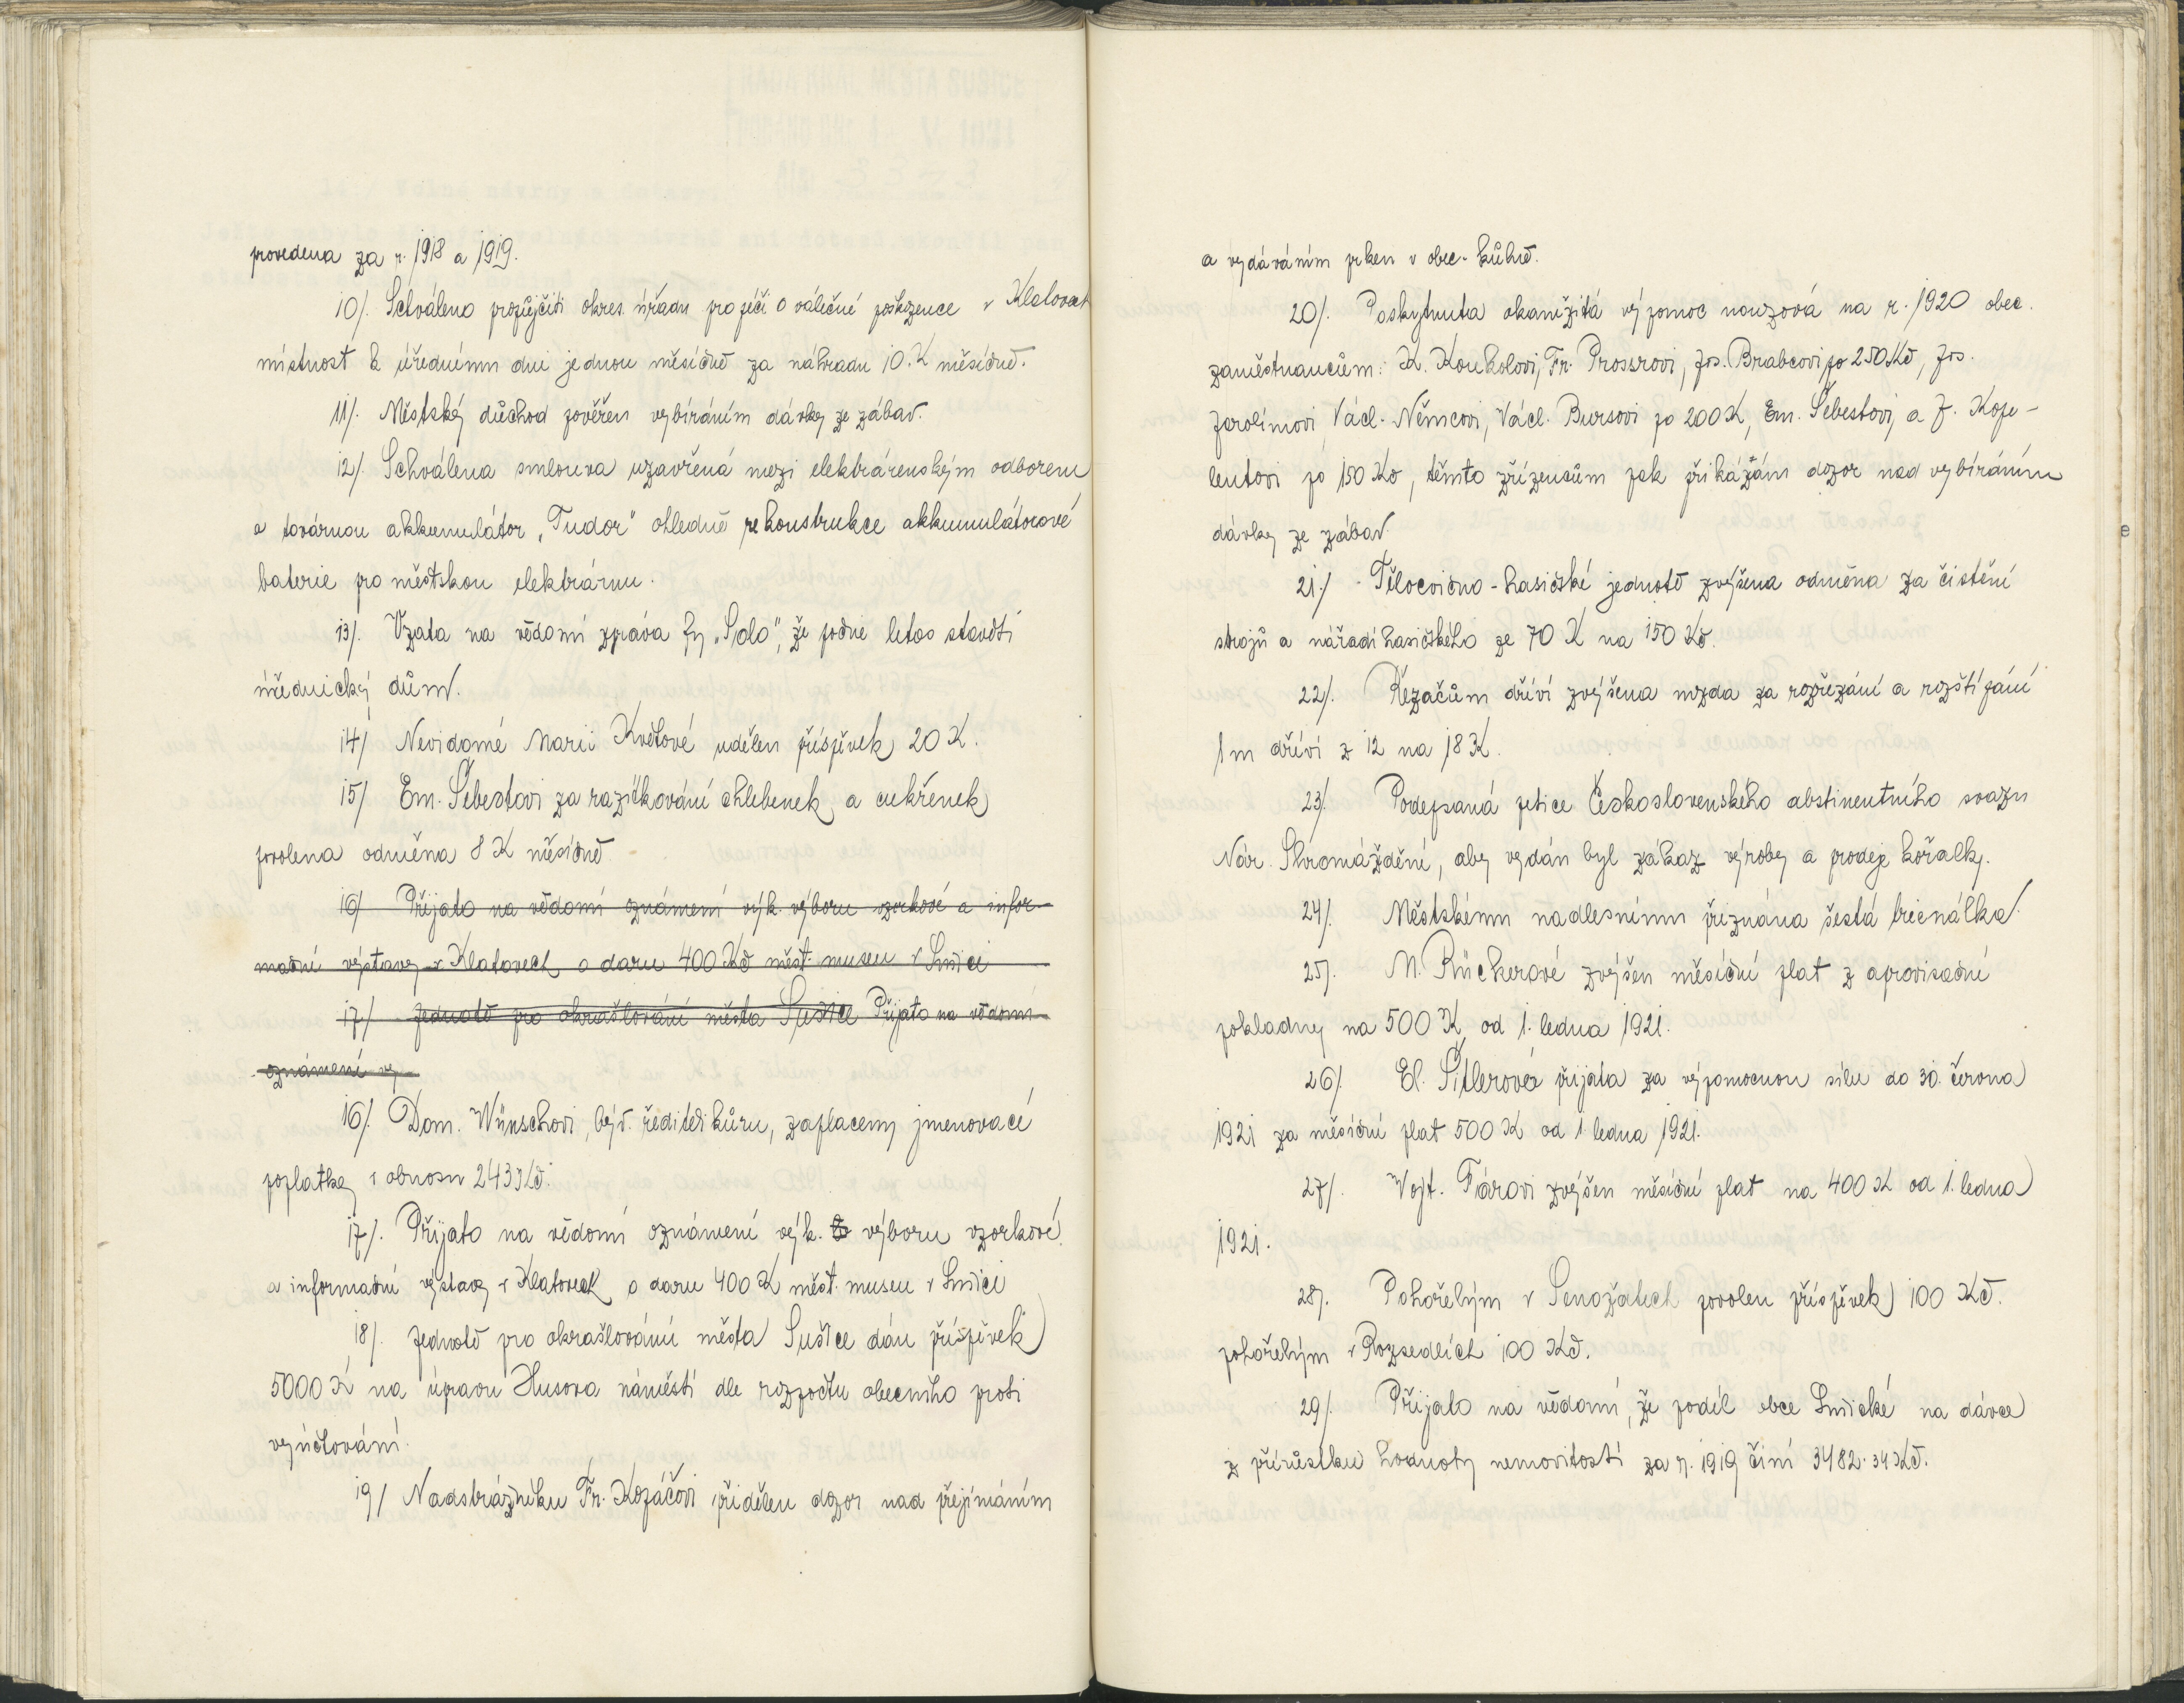 provedena za r. 1918 a 1919.
10/. Schváleno propůjčiti okres. úřadu pro péči o válečné poškozence v Klatovech
místnosť k úřednímu dni jednou měsíčně za náhradu 10.K měsíčně.
11/. Městský důchod pověřen vybíráním dávky ze zábav.
12/. Schválena smlouva uzavřená mezi elektrárenským odborem
a továrnou akkumulátor „Tudor" ohledně rekonstrukce akkumulátorové
baterie pro městskou elektrárnu.
13/. Vzata na vědomí zpráva fy „Solo", že počne letos stavěti
úřednický dům.
14/ Nevidomé Marii Květové udělen příspěvek 20 K.
15/ Em. Šebestovi za razítkování chlebenek a cukřenek
povolena odměna 8 K měsíčně
16/ Přijato na vědomí oznámení výk. výboru vzorkové a infor-
mační výstavy v Klatovech o daru 400 Kč měst. museu v Sušici
17/ Jednotě pro okrašlování města Sušice Přijato na vědomí
oznámení vý
16/. Dom. Wünschovi, býv. řediteli kůru, zaplaceny jmenovací
poplatky v obnosu 243 Kč.
17/. Přijato na vědomí oznámení výk. výboru vzorkové
a informační výstavy v Klatovech o daru 400 K měst. museu v Sušici
18/. Jednotě pro okrašlování města Sušice dán příspěvek
5000 K na úpravu Husova náměstí dle rozpočtu obecního proti
vyúčtování.
19/ Nadstrážníku Fr. Kozáčovi přidělen dozor nad přejímáním
a vydáváním prken v obec. kůlně.
20/. Poskytnuta okamžitá výpomoc nouzová na r. 1920 obec.
zaměstnancům: K. Koukolovi, Fr. Prossrovi, Jos. Brabcovi po 250 Kč, Jos.
Jarolímovi, Václ. Němcovi, Václ. Bursovi po 200 K, Em. Šebestovi, a J. Kope-
lentovi po 150 Kč, těmto zřízencům pak přikázán dozor nad vybíráním
dávky ze zábav.
21./ Tělocvičně-hasičské jednotě zvýšena odměna za čistění
strojů a nářadí hasičského ze 70 K na 150 Kč.
22/. Řezačům dříví zvýšena mzda za rozřezání a rozštípání
1 m dříví z 12 na 18 K.
23/. Podepsaná petice Československého abstinentního svazu
Nár. Shromáždění, aby vydán byl zákaz výroby a prodeje kořalky.
24/. Městskému nadlesnímu přiznána šestá trienálka.
25/. M. Rückerové zvýšen měsíční plat z aprovisační
pokladny na 500 K od 1. ledna 1921.
26/. El. Šitlerová přijata za výpomocnou sílu do 30. června
1921 za měsíční plat 500 K od 1. ledna 1921.
27/. Vojt. Fárovi zvýšen měsíční plat na 400 K od 1. ledna
1921.
28/. Pohořelým v Senožatech povolen příspěvek 100 Kč.
pohořelým v Rozsedlích 100 Kč.
29/. Přijato na vědomí, že podíl obce Sušické na dávce
z přírůstku hodnoty nemovitostí za r. 1919 činí 3482.34 Kč.